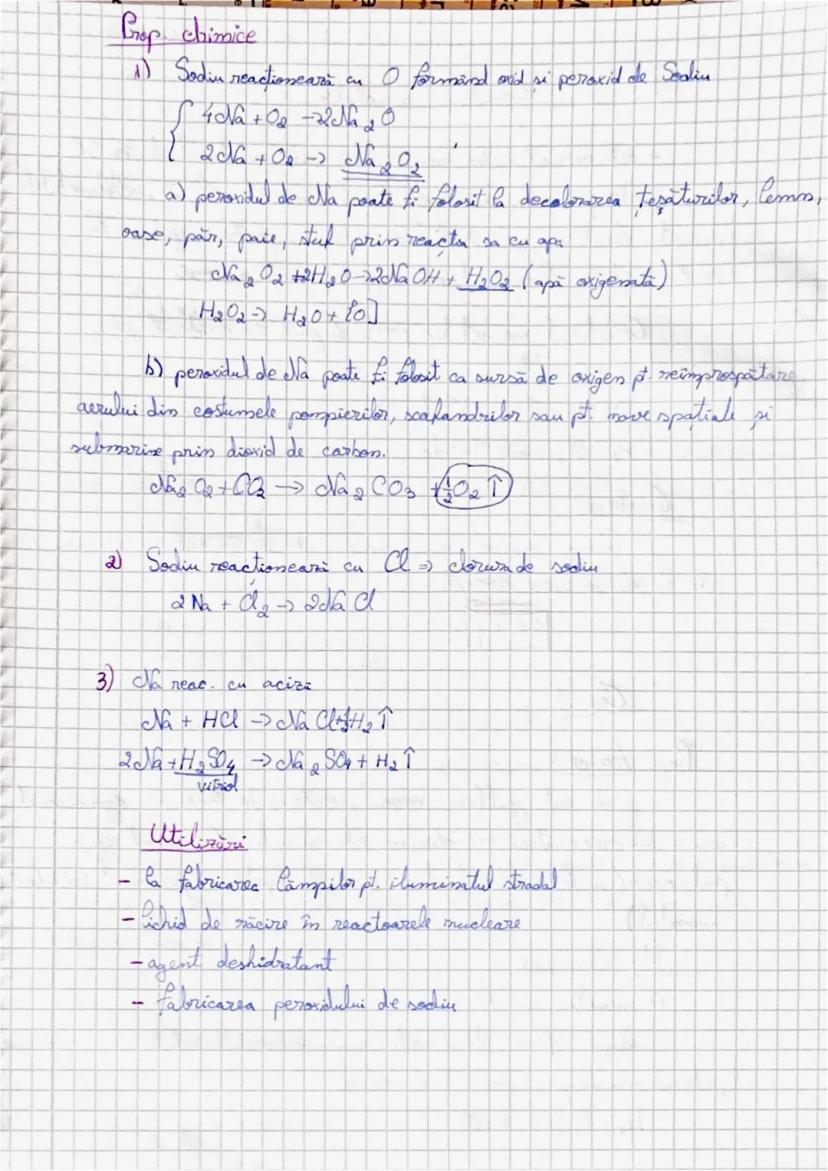 Prop. chimice
1) Sodiu reacționează cu O formând oxid și peroxid de Sodiu
4Na + O₂ → 2Na₂O
2Na + O₂ → Na₂O₂
a) peroxidul de Na poate fi folosit la decolorarea țesăturilor, lemn,
oase, păr, paie, stuf prin reacția sa cu apa
Na₂O₂ + 2H₂O → 2NaOH + H₂O₂ (apă oxigenată)
H₂O₂ → H₂O + [O]
b) peroxidul de Na poate fi folosit ca sursă de oxigen pt. reîmprospătare
aerului din costumele pompierilor, scafandrilor sau pt. nave spațiale și
submarine prin dioxid de carbon.
Na₂O₂ + CO₂ → Na₂CO₃ + ½O₂↑
2) Sodiu reacționează cu Cl ⇒ clorura de sodiu
2Na + Cl₂ → 2NaCl
3) Na reac. cu acizi
Na + HCl → NaCl + ½H₂↑
2Na + H₂SO₄ → Na₂SO₄ + H₂↑
vitriol
Utilizări
- la fabricarea lămpilor pt. iluminatul stradal
- lichid de răcire în reactoarele nucleare
- agent deshidratant
- fabricarea peroxidului de sodiu